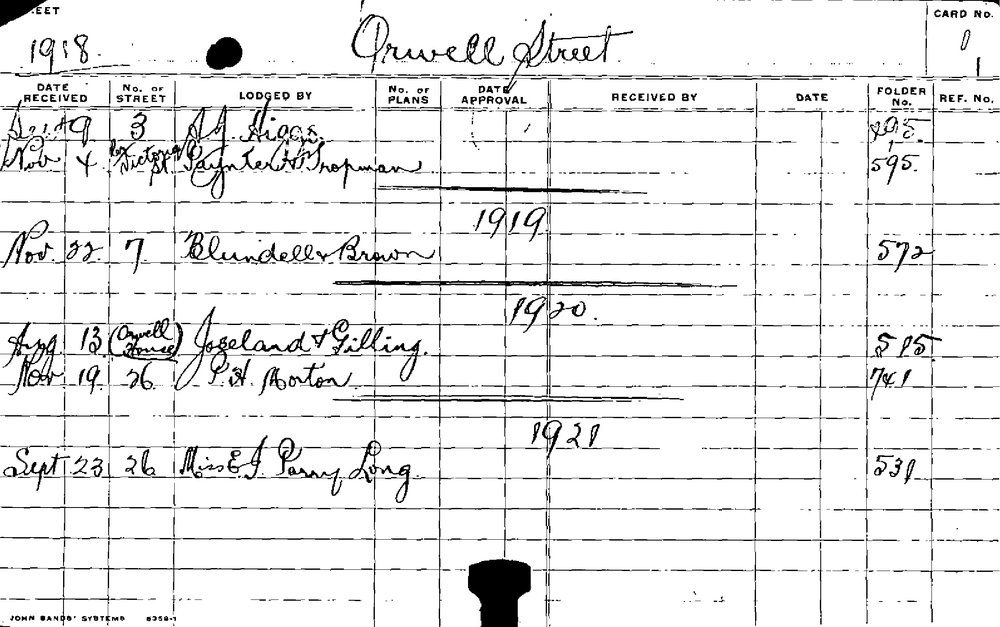 EET
CARD NO.
1918. Orwell Street 1
1
DATE RECEIVED NO. OF STREET LODGED BY NO. OF PLANS DATE APPROVAL RECEIVED BY DATE FOLDER NO. REF. NO.
9 3 A J. Higgs 495.
Nov 4 Victoria St Paynter & Tropman 595.
1919.
Nov. 22 7 Blundell & Brown 572
1920.
Aug. 13 (Orwell House) Joseland & Gilling. 515
Nov 19 26 P. H. Morton 741
1921
Sept 23 26 Miss E. J. Parry Long 531
JOHN SANDS' SYSTEMS 6358-1